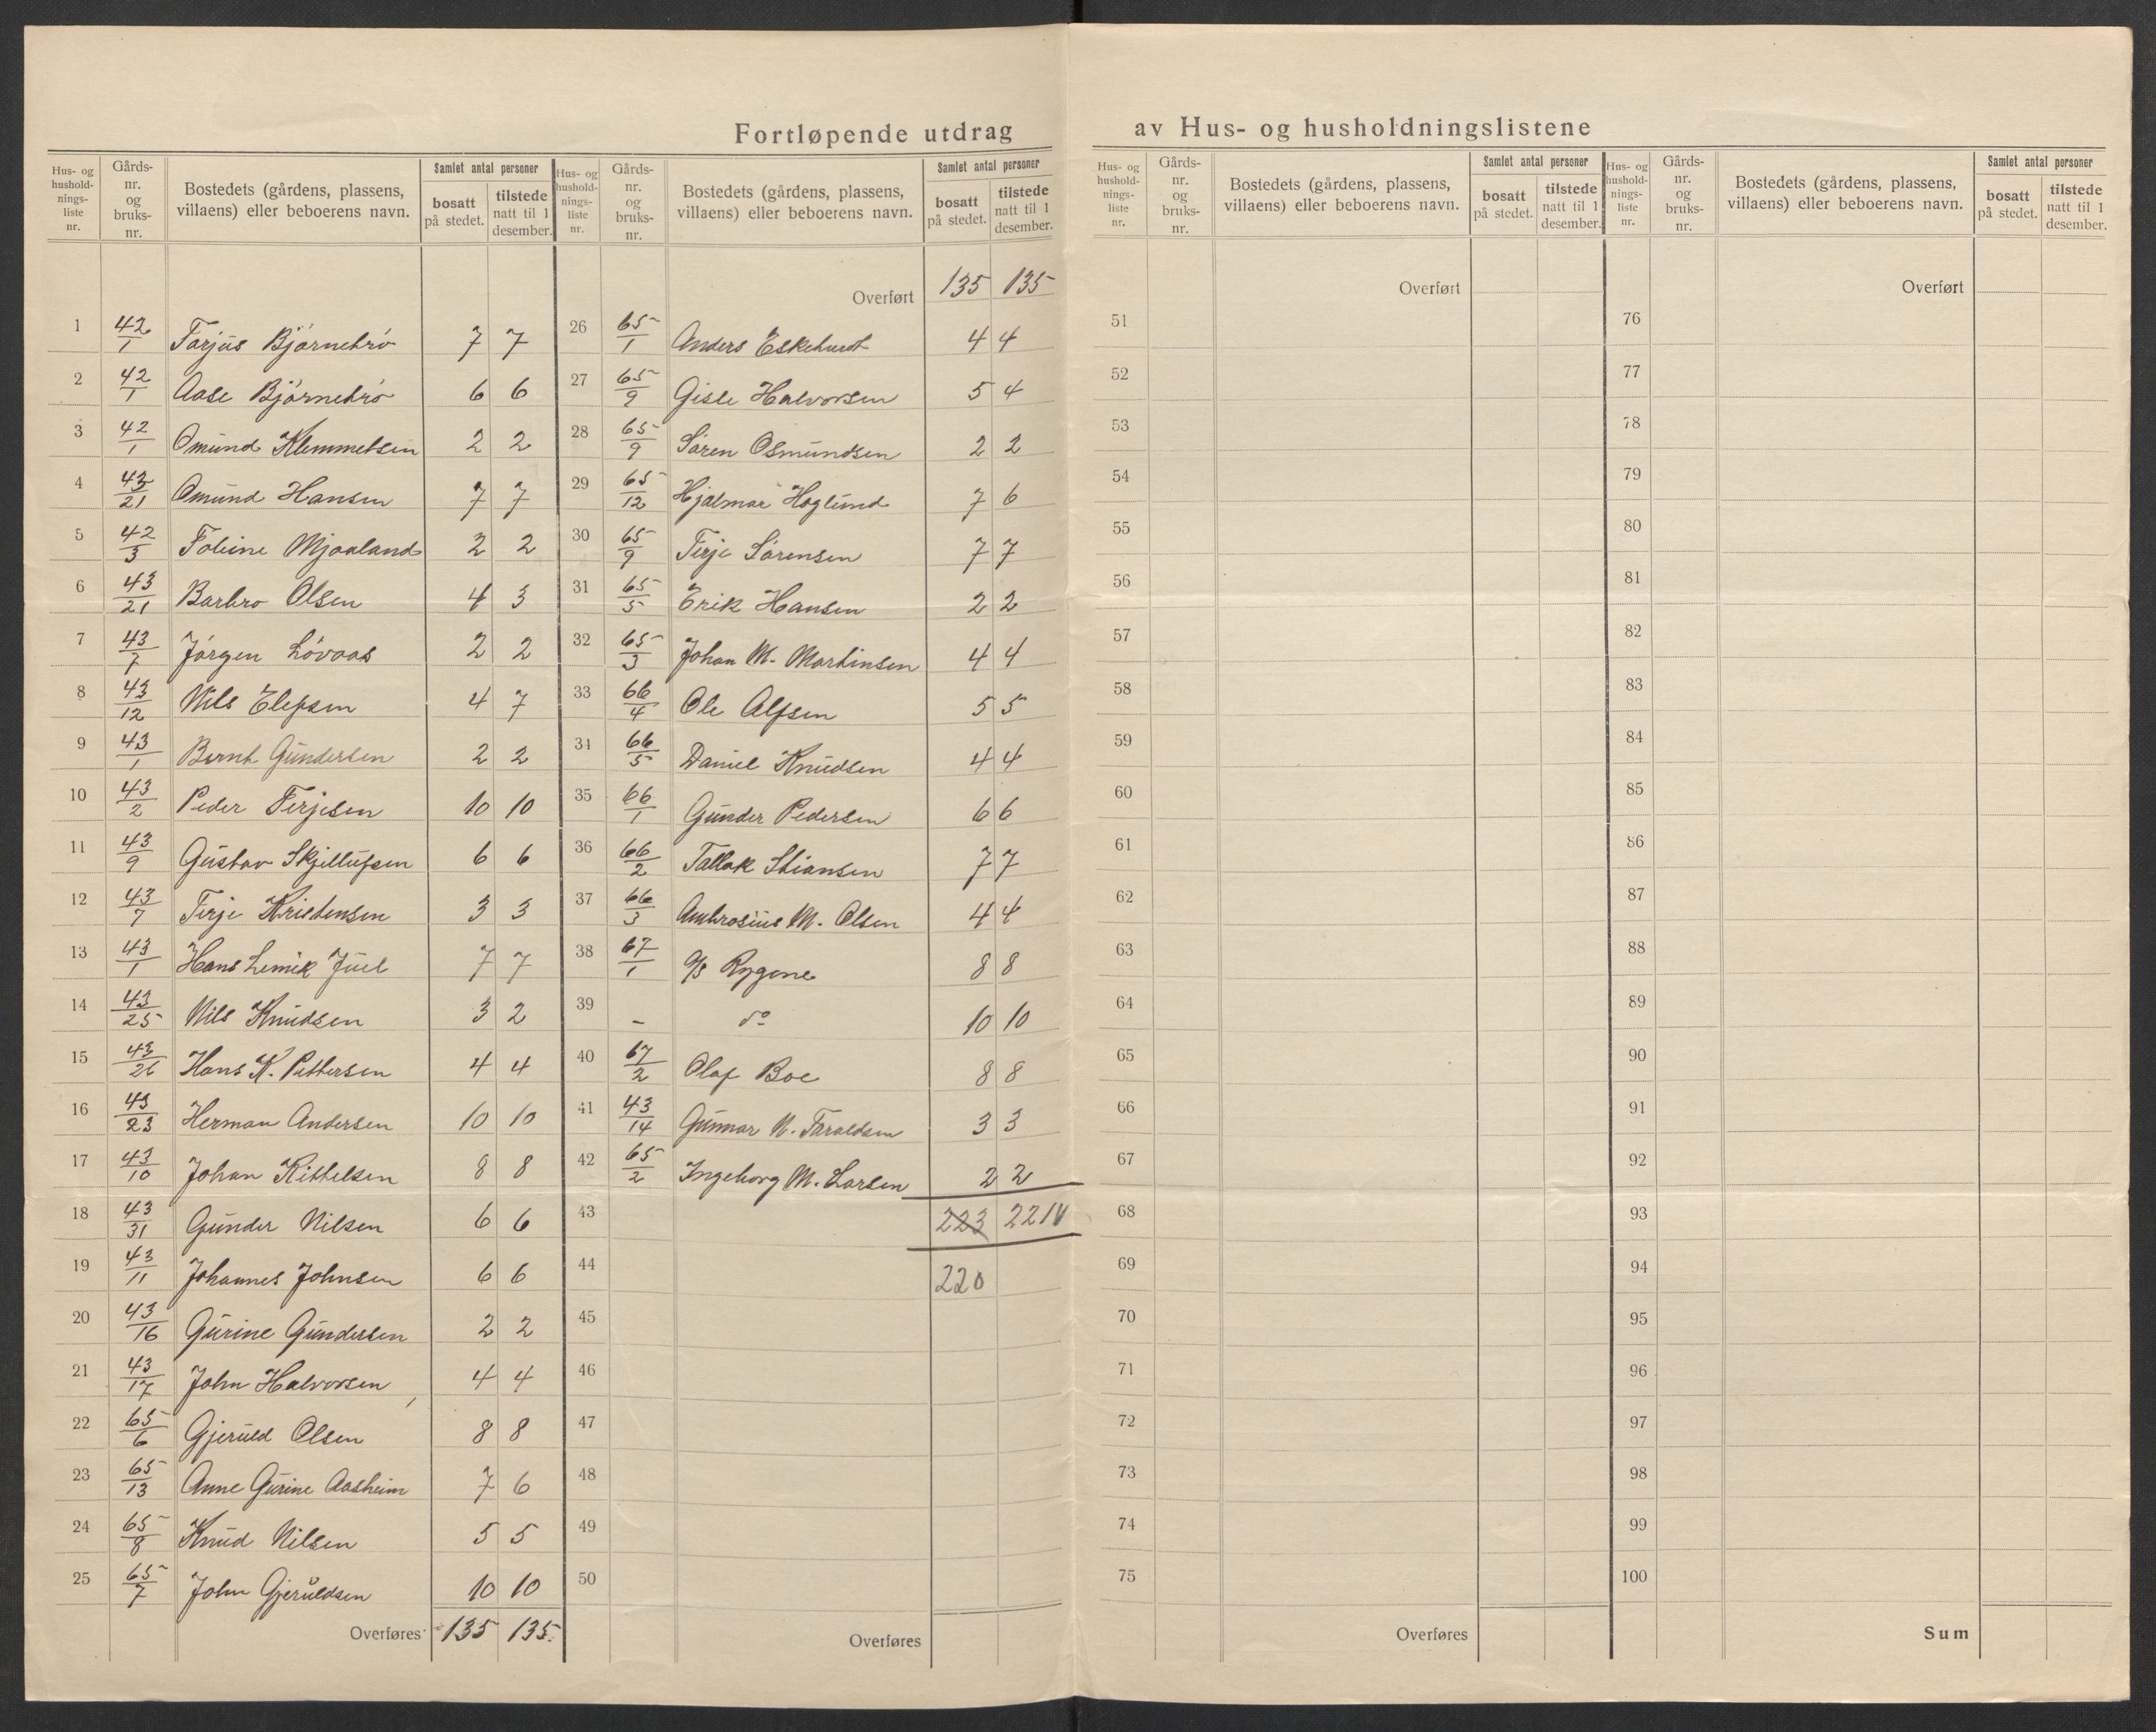 Fortløpende utdrag av Hus- og husholdningslistene
Hus- og husholdnings-liste nr. Gårds-nr. og bruks-nr. Bostedets (gårdens, plassens, villaens) eller beboerens navn. Samlet antal personer bosatt på stedet. tilstede natt til 1 desember.
1 42/1 Tarjus Bjørnebrø 7 7
2 42/1 Aase Bjørnebrø 6 6
3 42/1 Omund Klemmetsen 2 2
4 43/21 Omund Hansen 7 7
5 42/3 Mjaaland 2 2
6 43/21 Barbro Olsen 4 3
7 43/7 Jørgen Løvaas 2 2
8 43/12 Nils Elefsen 4 7
9 43/1 Bernt Gundersen 2 2
10 43/2 Peder Terjesen 10 10
11 43/9 Gustav Skjellufsen 6 6
12 43/7 Terje Kristensen 3 3
13 43/1 Hans Lemik Juel 7 7
14 43/25 Nils Knudsen 3 2
15 43/26 Hans K. Pettersen 4 4
16 43/23 Herman Andersen 10 10
17 43/10 Johan Kittelsen 8 8
18 43/31 Gunder Nilsen 6 6
19 43/11 Johannes Johnsen 6 6
20 43/16 Gurine Gundersen 2 2
21 43/17 John Halvorsen 4 4
22 65/6 Gjeruld Olsen 8 8
23 65/13 Anne Gurine Aasheim 7 6
24 65/8 Knud Nilsen 5 5
25 65/7 John Gjeruldsen 10 10
Overføres 135 135
Hus- og husholdnings-liste nr. Gårds-nr. og bruks-nr. Bostedets (gårdens, plassens, villaens) eller beboerens navn. Samlet antal personer bosatt på stedet. tilstede natt til 1 desember.
Overført 135 135
26 65/1 Anders Eskehuedt 4 4
27 65/9 Gisle Halvorsen 5 4
28 65/9 Søren Osmundsen 2 2
29 65/12 Hjalmar Høglund 7 6
30 65/9 Terje Sørensen 7 7
31 65/5 Erik Hansen 2 2
32 65/3 Johan M. Martinsen 4 4
33 66/4 Ole Alfsen 5 5
34 66/5 Daniel Knudsen 4 4
35 66/1 Gunder Pedersen 6 6
36 66/2 Tallak Stiansen 7 7
37 66/3 Ambrosius M. Olsen 4 4
38 67/1 A/S Rygene 8 8
39 - do 10 10
40 67/2 Olaf Boe 8 8
41 43/14 Gunnar N. Taraldsen 3 3
42 65/2 Ingeborg M. Larsen 2 2
43 223 221
44 220
45
46
47
48
49
50
Overføres
Hus- og husholdnings-liste nr. Gårds-nr. og bruks-nr. Bostedets (gårdens, plassens, villaens) eller beboerens navn. Samlet antal personer bosatt på stedet. tilstede natt til 1 desember.
Overført
51
52
53
54
55
56
57
58
59
60
61
62
63
64
65
66
67
68
69
70
71
72
73
74
75
Overføres
Hus- og husholdnings-liste nr. Gårds-nr. og bruks-nr. Bostedets (gårdens, plassens, villaens) eller beboerens navn. Samlet antal personer bosatt på stedet. tilstede natt til 1 desember.
Overført
76
77
78
79
80
81
82
83
84
85
86
87
88
89
90
91
92
93
94
95
96
97
98
99
100
Sum